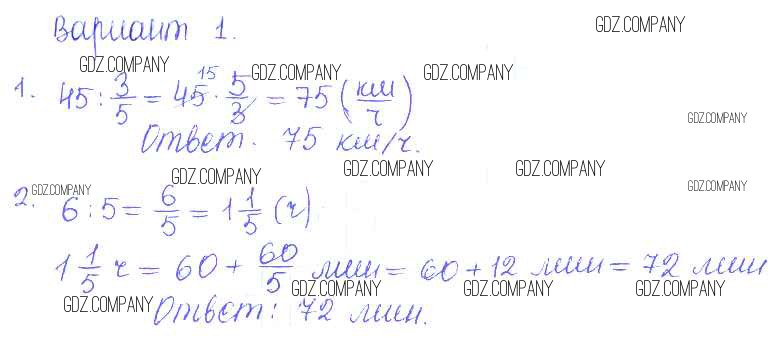 Вариант 1. GDZ.COMPANY
GDZ.COMPANY GDZ.COMPANY GDZ.COMPANY
1. 45 : 3/5 = 45 15 · 5/3 = 75 (км/ч) GDZ.COMPANY
Ответ. 75 км/ч.
GDZ.COMPANY GDZ.COMPANY GDZ.COMPANY GDZ.COMPANY GDZ.COMPANY
2. 6 : 5 = 6/5 = 1 1/5 (ч)
1 1/5 ч = 60 + 60/5 мин = 60 + 12 мин = 72 мин
GDZ.COMPANY GDZ.COMPANY GDZ.COMPANY GDZ.COMPANY
Ответ: 72 мин.